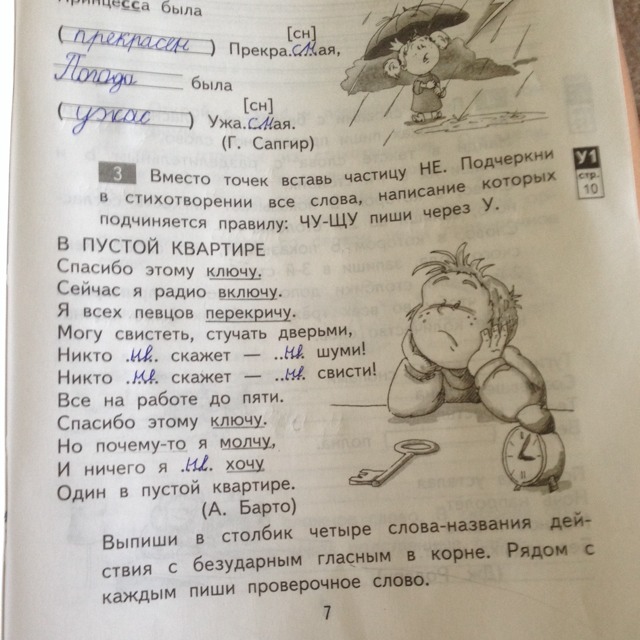 Принцесса была
[сн]
( прекрасен ) Прекра.сн.ая,
Погода была
[сн]
( ужас ) Ужа.сн.ая.
(Г. Сапгир)
3 Вместо точек вставь частицу НЕ. Подчеркни
в стихотворении все слова, написание которых
подчиняется правилу: ЧУ-ЩУ пиши через У.
У1
стр.
10
В ПУСТОЙ КВАРТИРЕ
Спасибо этому ключу.
Сейчас я радио включу.
Я всех певцов перекричу.
Могу свистеть, стучать дверьми,
Никто .не. скажет — ..не. шуми!
Никто .не. скажет — ..не. свисти!
Все на работе до пяти.
Спасибо этому ключу.
Но почему-то я молчу,
И ничего я .не. хочу
Один в пустой квартире.
(А. Барто)
Выпиши в столбик четыре слова-названия дей-
ствия с безударным гласным в корне. Рядом с
каждым пиши проверочное слово.
7